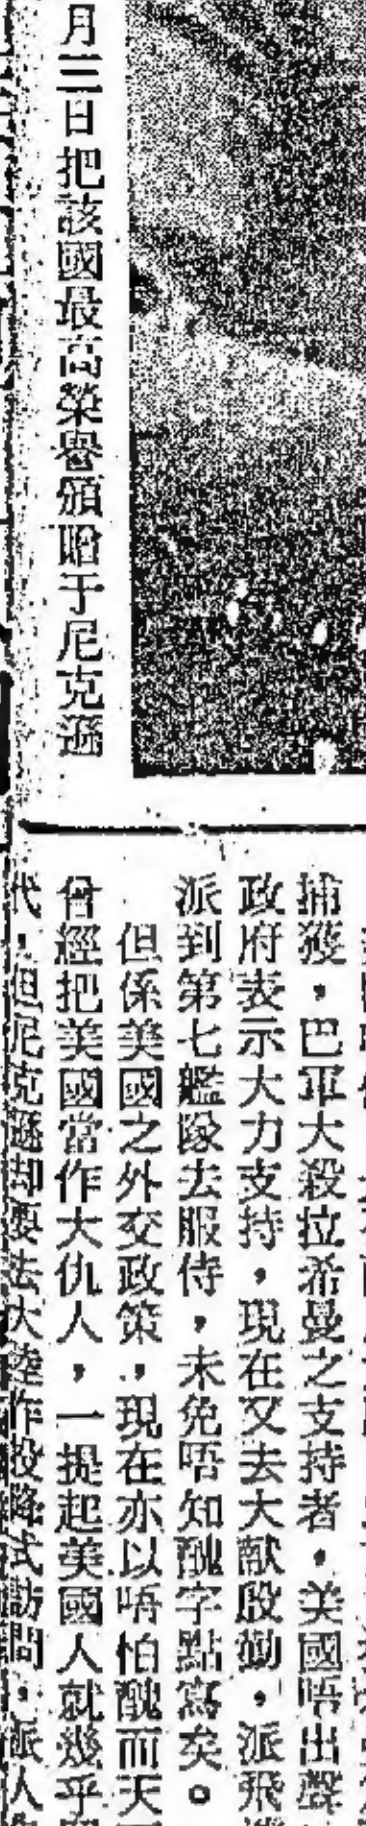 月三日把該國最高榮譽頒贈于尼克遜
捕獲，巴軍大殺拉希曼之支持者，美國唔出聲
政府表示大力支持，現在又去大献殷勤，派飛
派到第七艦隊去服侍，未免唔知醜字點寫矣。
但係美國之外交政策，現在亦以唔怕醜而天
曾經把美國當作大仇人，一提起美國人就幾乎
代，但尼克遜却要去大陸作投降式訪問，派人